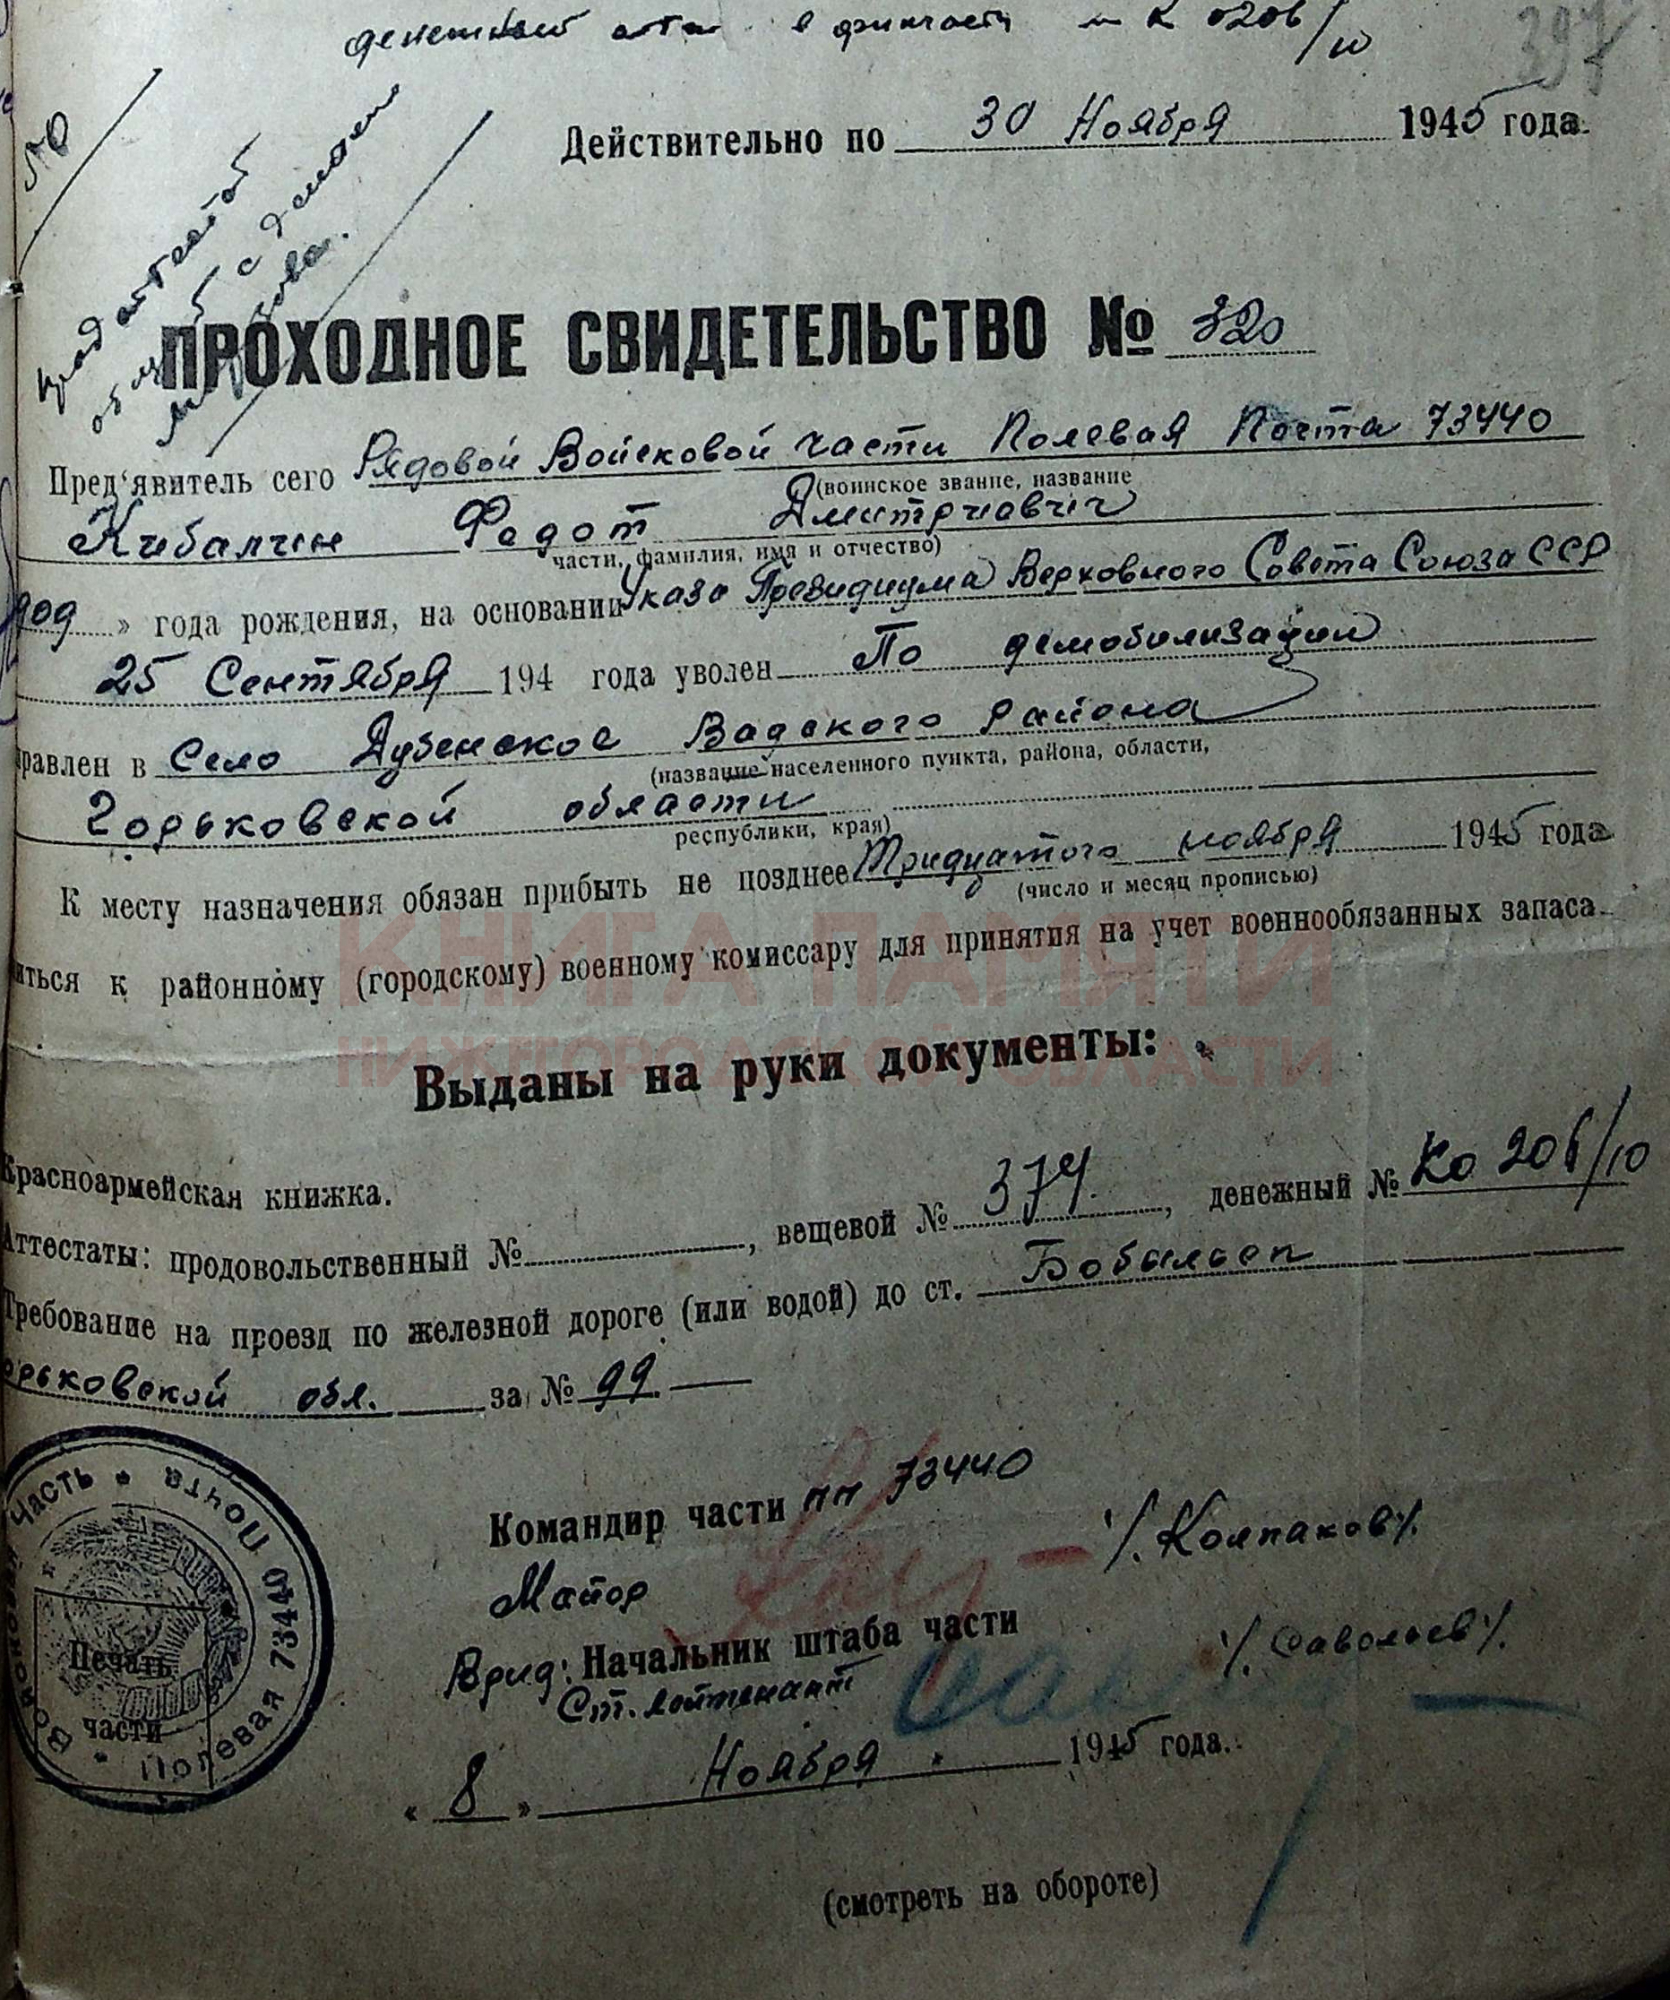 денежный атт. в финчасти
Действительно по 30 Ноября 1945 года.
Прод аттестат
ПРОХОДНОЕ СВИДЕТЕЛЬСТВО № 320
Пред'явитель сего Рядовой Войсковой части Полевая Почта 73440
(воинское звание, название
Кибалчин Федот Дмитриавич
части, фамилия, имя и отчество)
909 » года рождения, на основании Указа Президиума Верховного Совета Союза ССР
25 Сентября 194 года уволен По демобилизации
равлен в Село Дубенское Вадского района
(название населенного пункта, района, области,
Горьковской области
республики, края)
К месту назначения обязан прибыть не позднее Тридцатого ноября 1945 года
(число и месяц прописью)
иться к районному (городскому) военному комиссару для принятия на учет военнообязанных запаса.
КНИГА ПАМЯТИ
НИЖЕГОРОДСКОЙ ОБЛАСТИ
Выданы на руки документы:
Красноармейская книжка.
Аттестаты: продовольственный № , вещевой № 374, денежный № Ко 206/10
Требование на проезд по железной дороге (или водой) до ст. Бобыльсп
орьковской обл. за № 99.
Войсковая Часть * Полевая Почта 73440
Печать
части
Командир части пп 73440
Майор /. Колпаков /.
Врид: Начальник штаба части
Ст. лейтенант /. Савольев /.
« 8 » Ноября 1945 года.
(смотреть на обороте)